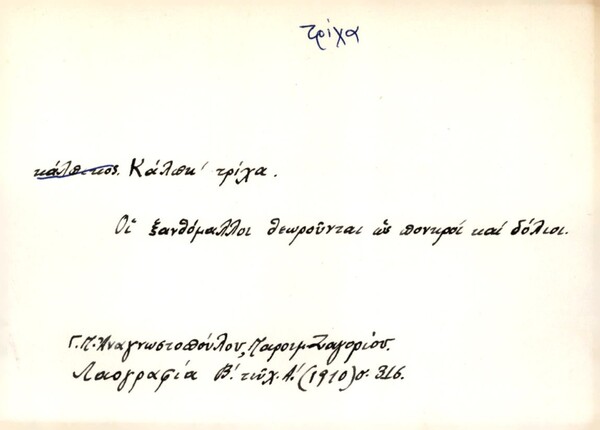 τρίχα
κάλπικος. Κάλπικ' τρίχα.
Οἱ ξανθόμαλλοι θεωροῦνται ὡς πονηροί καί δόλιοι.
Γ. Π. Ἀναγνωστοπούλου, Παροιμ. Ζαγορίου.
Λαογραφία Β'. τεῦχ. Α'. (1910) σ. 316.